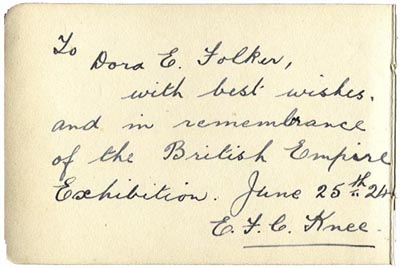 To
Dora E. Folker,
with best wishes.
and in remembrance
of the British Empire
Exhibition. June 25th 24
E. F. C. Knee.